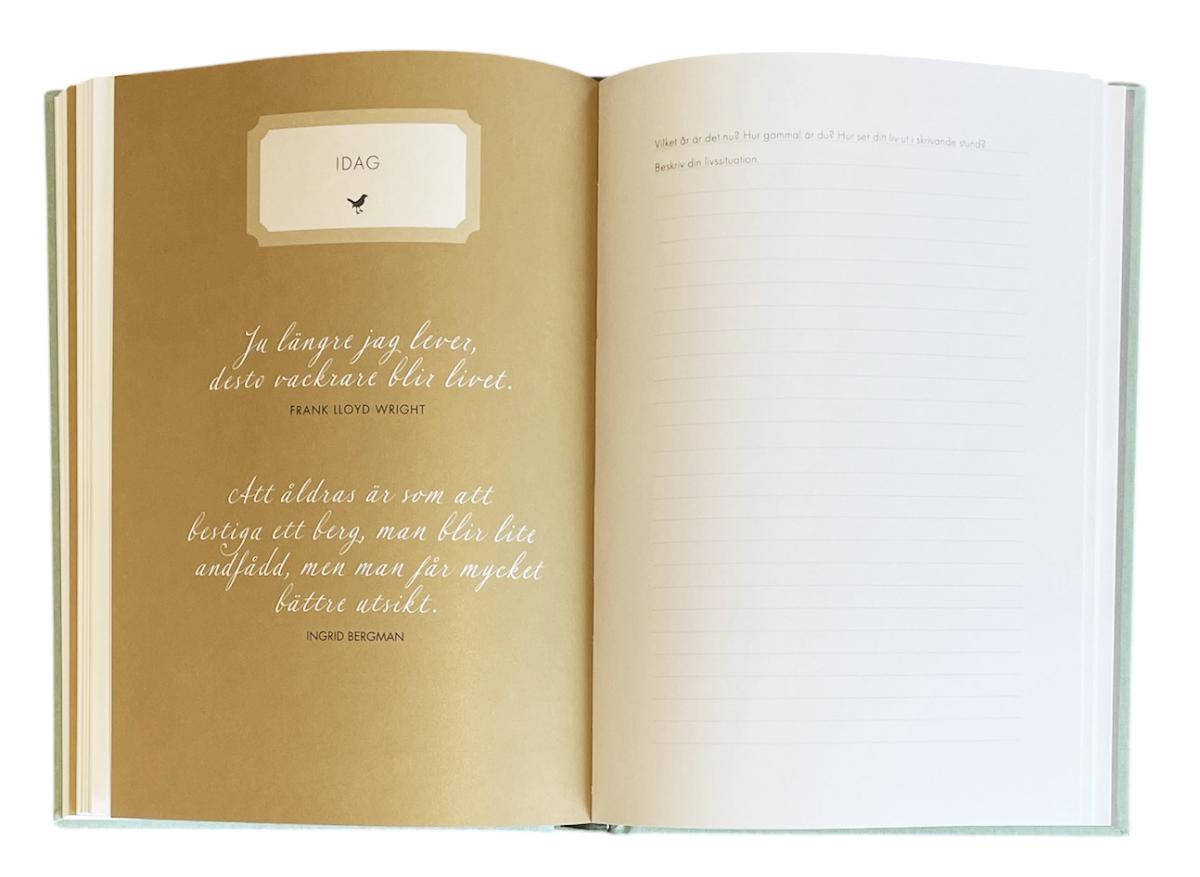 IDAG
Ju längre jag lever,
desto vackrare blir livet.
FRANK LLOYD WRIGHT
Att åldras är som att
bestiga ett berg, man blir lite
andfådd, men man får mycket
bättre utsikt.
INGRID BERGMAN
Vilket år är det nu? Hur gammal är du? Hur ser ditt liv ut i skrivande stund?
Beskriv din livssituation.